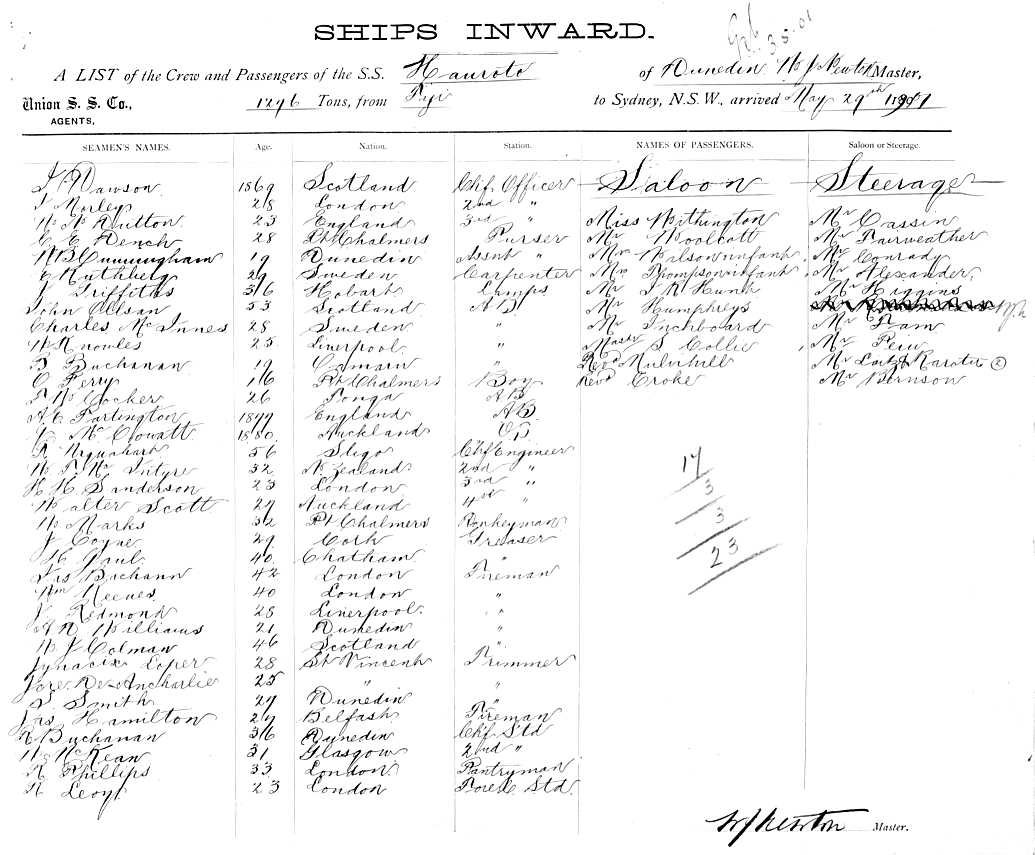 SHIPS INWARD.
35.01
A LIST of the Crew and Passengers of the S.S. Hauroto of Dunedin W J Newton Master,
Union S. S. Co., 1276 Tons, from Fiji to Sydney, N.S.W., arrived May 29th 1901
AGENTS,
SEAMEN'S NAMES. Age. Nation. Station. NAMES OF PASSENGERS. Saloon or Steerage.
Dawson 1869 Scotland Chf Officer Saloon Steerage
Morley 28 London 2nd " Miss Withington Mr Cassin
Hutton 23 England 3rd " Mr Woolcott Mr Fairweather
Dench 28 Pt Chalmers Purser Mrs Infant Mr Conrady
Cunningham 19 Dunedin Assnt " Mrs Thompson infant Mr Alexander
E Ruthberg 29 Sweden Carpenter Mr Hunt Mr Higgins
J Griffiths 36 Hobart Lamps Mr Humphreys
John Allsan 53 Scotland A B Mr Inchboard Mr Ram
Charles Mc Innes 28 Sweden " Mastr S Collie Mr Peru
W Knowles 25 Liverpool " Revd Mulvihill Mr Karatu (2)
Buchanan 19 Oamaru " Revd Croke Mr Bernson
Perry 16 Pt Chalmers Boy
Cocker 26 Tonga A B
A E Partington 1877 England A B
Mc Cowatt 1880 Auckland O S
Urquhart 56 Sligo Chf Engineer
Mc Intyre 32 N. Zealand 2nd "
H H Sanderson 23 London 3rd "
Walter Scott 27 Auckland 4th "
W Marks 32 Pt Chalmers Donkeyman
J Coyne 29 Cork Greaser
H Gaul 40 Chatham "
Jas Buchann 42 London Fireman
Wm Reeves 40 London "
J Redmond 28 Liverpool "
A R Williams 21 Dunedin "
W J Colman 46 Scotland "
Loper 28 St Vincent Trimmer
De Ancharlie 25 " "
S Smith 27 Dunedin "
Jas Hamilton 27 Belfast Fireman
R Buchanan 36 Dunedin Chf Std
W McKean 31 Glasgow 2nd "
R Phillips 33 London Pantryman
Leoyt 23 London Fore C. Std.
17
3
3
23
W J Newton Master.